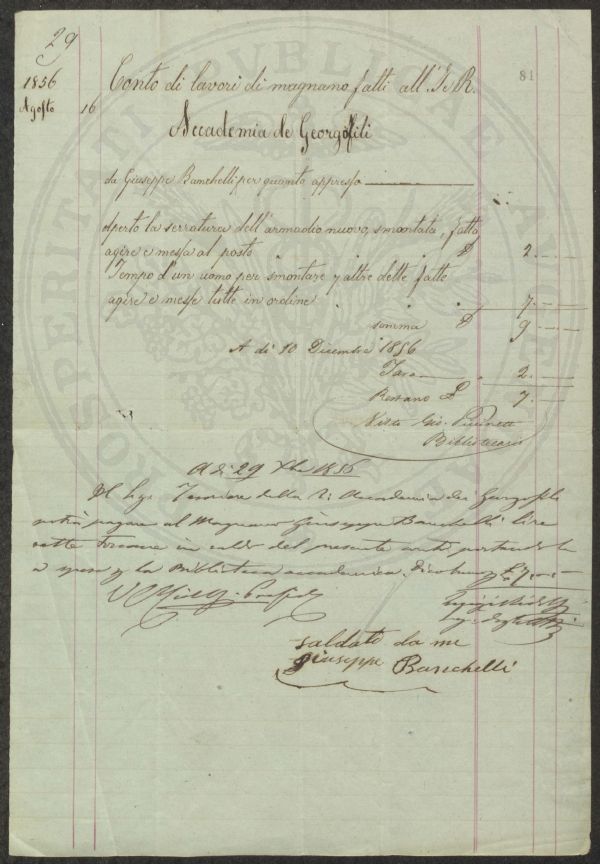 29
1856
Agosto 16
81
Conto di lavori di magnano fatti all'I. R.
Accademia de Georgofili
da Giuseppe Banchelli per quanto appresso
Aperto la serratura dell'armadio nuovo, smontata, fatta
agire e messa al posto £ 2. --
Tempo d'un uomo per smontare 7 altre dette fatte
agire e messe tutte in ordine 7. --
somma £ 9 --
A dì 10 Dicembre 1856
Tara 2. --
Restano £ 7. --
Visto Gio.
Bibliotecario
A dì 29 Xbre 1856
Il Sig. Tesoriere della R. Accademia dei Georgofili
potrà pagare al Magnano Giuseppe Banchelli lire
sette Toscane in saldo del presente conto portandole
a spese per la Biblioteca accademica. Dico £ 7 --
saldato da me
Giuseppe Banchelli
PROSPERITATI PUBLICAE